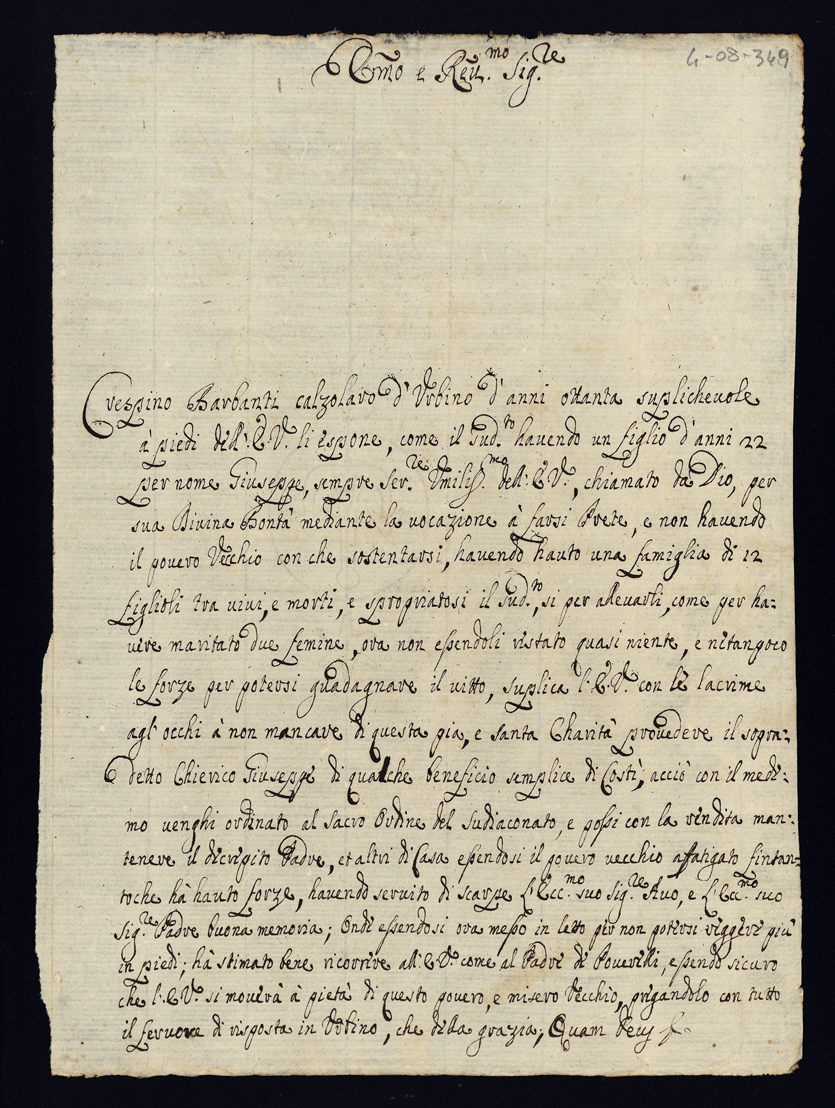 Emo e Reu.mo Sig.re
4-08-349
Crespino Barbanti calzolaro d'Urbino d'anni ottanta suplicheuole
à piedi dell'E.V. li espone, come il Sud.to hauendo un figlio d'anni 22
per nome Giuseppe, sempre Ser.re Umiliss.mo dell'E.V., chiamato da Dio, per
sua Diuina Bontà mediante la uocazione à farsi Prete, e non hauendo
il pouero Vecchio con che sostentarsi, hauendo hauto una famiglia di 12
figlioli tra uiui, e morti, e spropriatosi il Sud.to, si per alleuarli, come per ha:
uere maritato due femine, ora non essendoli ristato quasi niente, e ne tampoco
le forze per potersi guadagnare il uitto, suplica l'E.V. con le lacrime
agl'occhi à non mancare di questa pia, e santa Charità prouedere il sopra:
detto Chierico Giuseppe di qualche beneficio semplice di Costì, acciò con il mede:
mo uenghi ordinato al sacro Ordine del sudiaconato, e possi con la rendita man:
tenere il decrepito Padre, et altri di Casa essendosi il pouero uecchio affatigato fintan:
toche hà hauto forze, hauendo seruito di scarpe l'Ecc.mo suo Sig.re Auo, e l'Ecc.mo suo
Sig.re Padre buona memoria; Onde essendosi ora messo in letto per non potersi reggere più
in piedi; hà stimato bene ricorrere all'E.V. come al Padre de Pouerelli, essendo sicuro
che l'E.V. si mouerà à pietà di questo pouero, e misero Vecchio, pregandolo con tutto
il feruore di risposta in Urbino, che della grazia; Quam Deus